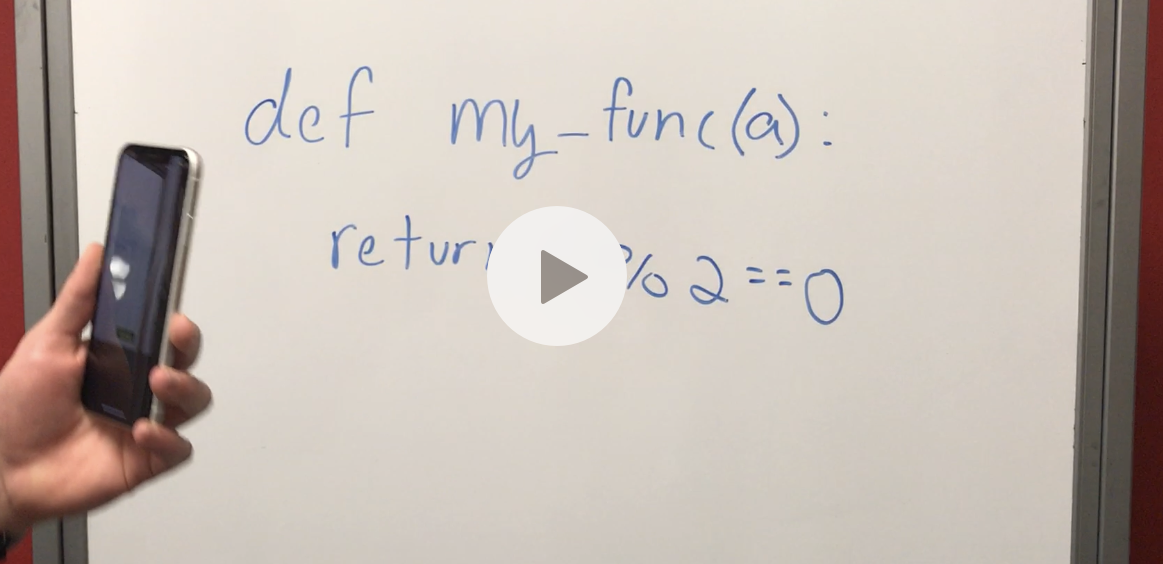 def my_func(a):
return % 2==0